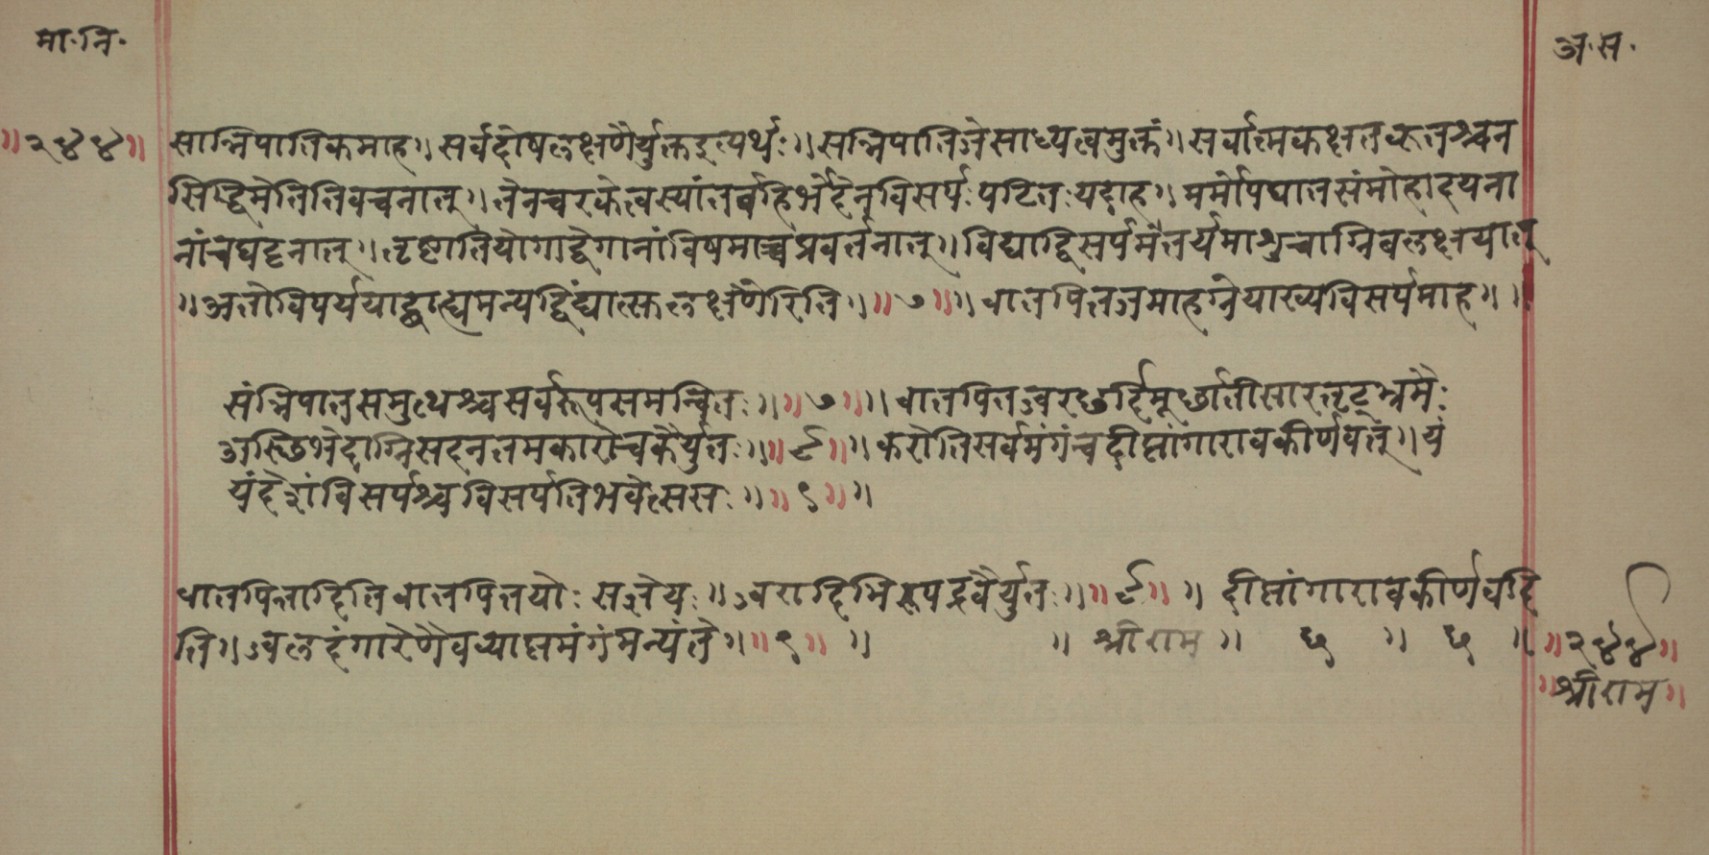 मा·नि·
अ·स·
॥२४४॥ सान्निपातिकमाह॥ सर्वदोषलक्षणैर्युक्तइत्यर्थः॥ सन्निपातिजेसाध्यत्वमुक्तं॥ सर्वात्मकक्षतकृतश्चन
सिद्धिमेतितिवचनात्॥ तेनचरकेत्वस्यांतर्वहिर्भेदेनविसर्पः पठितः यदाह॥ मर्मोपघातसंमोहादयना
नांचघट्टनात्॥ तृष्णातियोगाद्वेगानांविषमाच्चप्रवर्तनात्॥ विद्याद्विसर्पमंतर्यमाशुचाग्निवलक्षयात्
॥ अतोविपर्ययाद्बाह्यमन्यद्विंद्यात्स्वलक्षणैरिति॥ ॥७॥ ॥ वातपित्तजमाहग्नेयाख्यविसर्पमाह॥ ॥
संन्निपातसमुत्थश्चसर्वरूपसमन्वितः॥ ॥७॥ ॥ वातपितज्वरछर्दिमूर्छातीसारतृट्भ्रमैः
अस्थिभेदाग्निसदनतमकारोचकैर्युतः॥ ॥८॥ ॥ करोतिसर्वमंगंचदीप्तांगारावकीर्णवत्॥ यं
यंदेशंविसर्पश्चविसर्पतिभवेत्सस॥ ॥९॥ ॥
वातपित्तादितिवातपितयोः सज्ञेयः॥ ज्वरादिभिरूपद्रवैर्युतः॥ ॥८॥ ॥ दीप्तांगारावकीर्णवदि
ति॥ ज्वलदंगारेणैवव्याप्तमंगंमन्यंते॥ ॥९॥ ॥ ॥ श्रीराम ॥ ॥ ॥ ॥२४४॥
॥श्रीराम॥